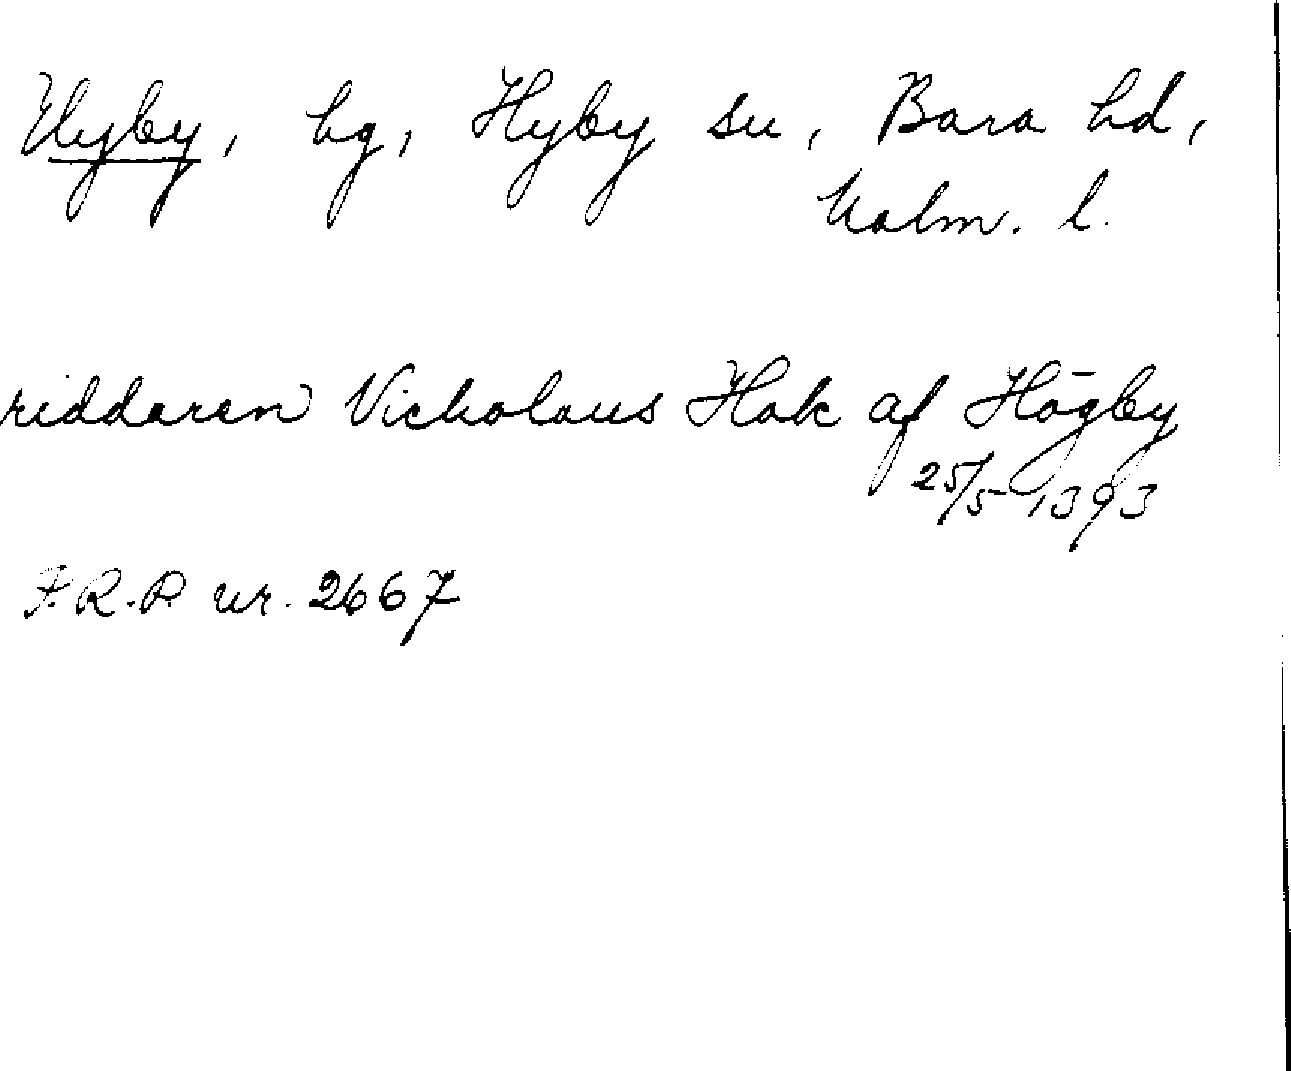 Hyby, hg, Hyby sn, Bara hd,
Malm. l.
riddaren Nicholaus Hak af Högby
25/5 1393
F.R.P nr. 2667